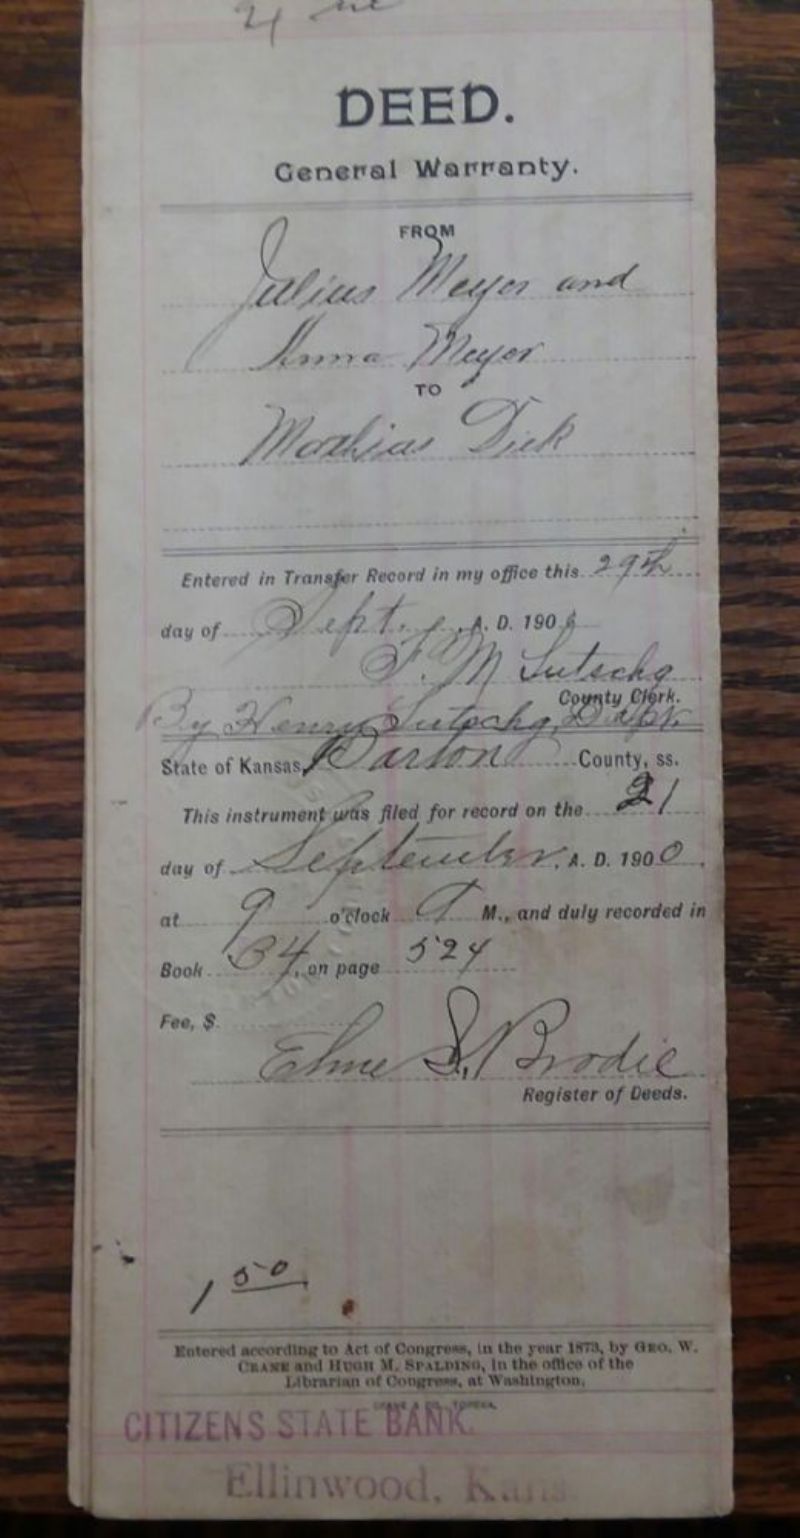 DEED.
General Warranty.
FROM
Julius Meyer and
Anna Meyer
TO
Mathias Dick
Entered in Transfer Record in my office this 29th
day of Sept. A. D. 190
F. M Lutschg
County Clerk.
By Henry Lutschg, Dept.
State of Kansas, Barton County, ss.
This instrument was filed for record on the 21
day of September, A. D. 1900.
at 9 o'clock M., and duly recorded in
Book 34, on page 524
Fee, $
S. Brodie
Register of Deeds.
1 50
Entered according to Act of Congress, in the year 1873, by GEO. W.
CRANE and HUGH M. SPALDING, in the office of the
Librarian of Congress, at Washington.
CRANE & CO., TOPEKA.
CITIZENS STATE BANK.
Ellinwood, Kans.